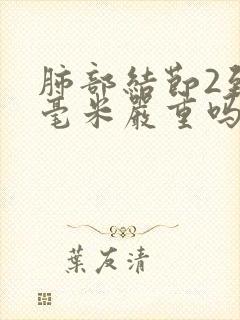 肺部結節2至
毫米嚴重嗎
葉友清